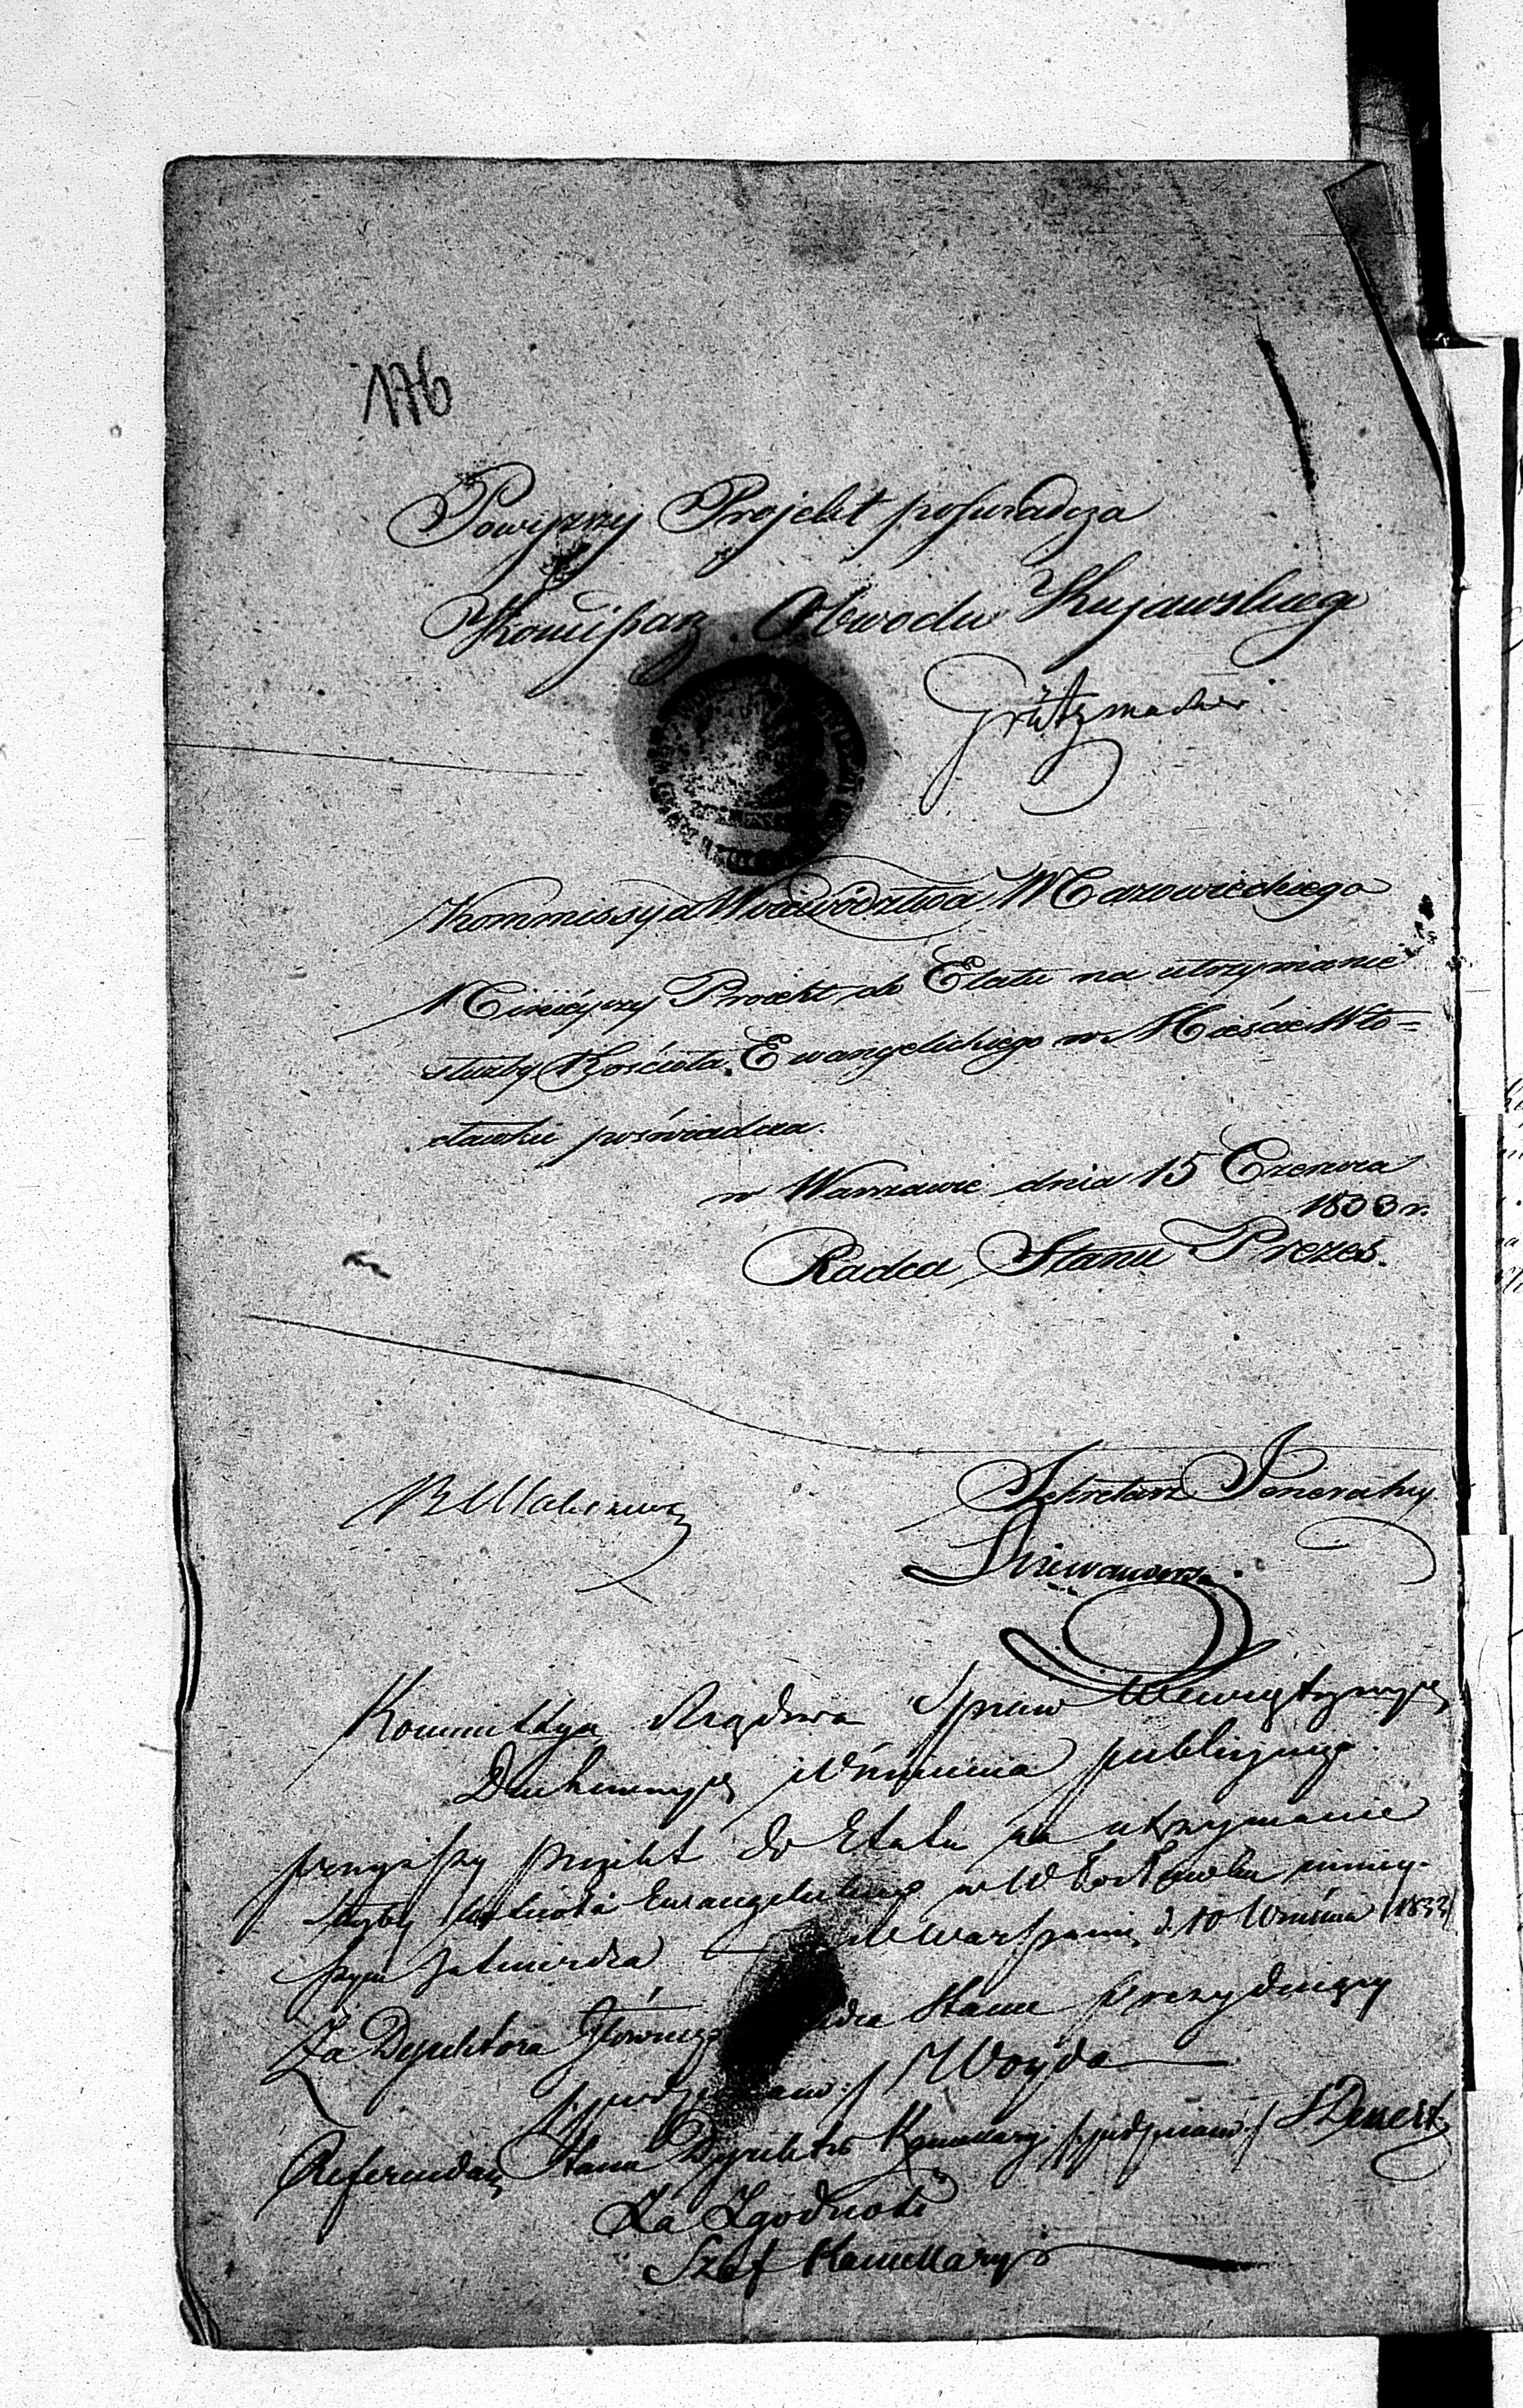 176
Powyzszy Projekt poswiadcza
Komissarz Obwodu Kujawskiego
Grützmacher
Kommissya Woiewództwa Mazowieckiego
Ninieyszy Proiekt do Etatu na utrzymanie
służby Kościoła Ewangelickiego w Mieście Wło=
cławku poświadcza.
w Warszawie dnia 15 Czerwca
1833 r.
Radca Stanu Prezes.
Sekretarz Jeneralny
Kommissya Rządowa Spraw Wewnętrznych
Duchownych i Oświecenia publicznego.
powyższy projekt do Etatu na utrzymanie
służby kościoła Ewangelickiego w Włocławku niniey-
szym zatwierdza w Warszawie d. 10 Września 1833
Za Dyrektora Głównego Radca Stanu Prezydujący
/:podpisano:/ Woyda
Referendarz Stanu Dyrektor Kancellaryi /:podpisano:/
Za Zgodność
Szef Kancellaryi